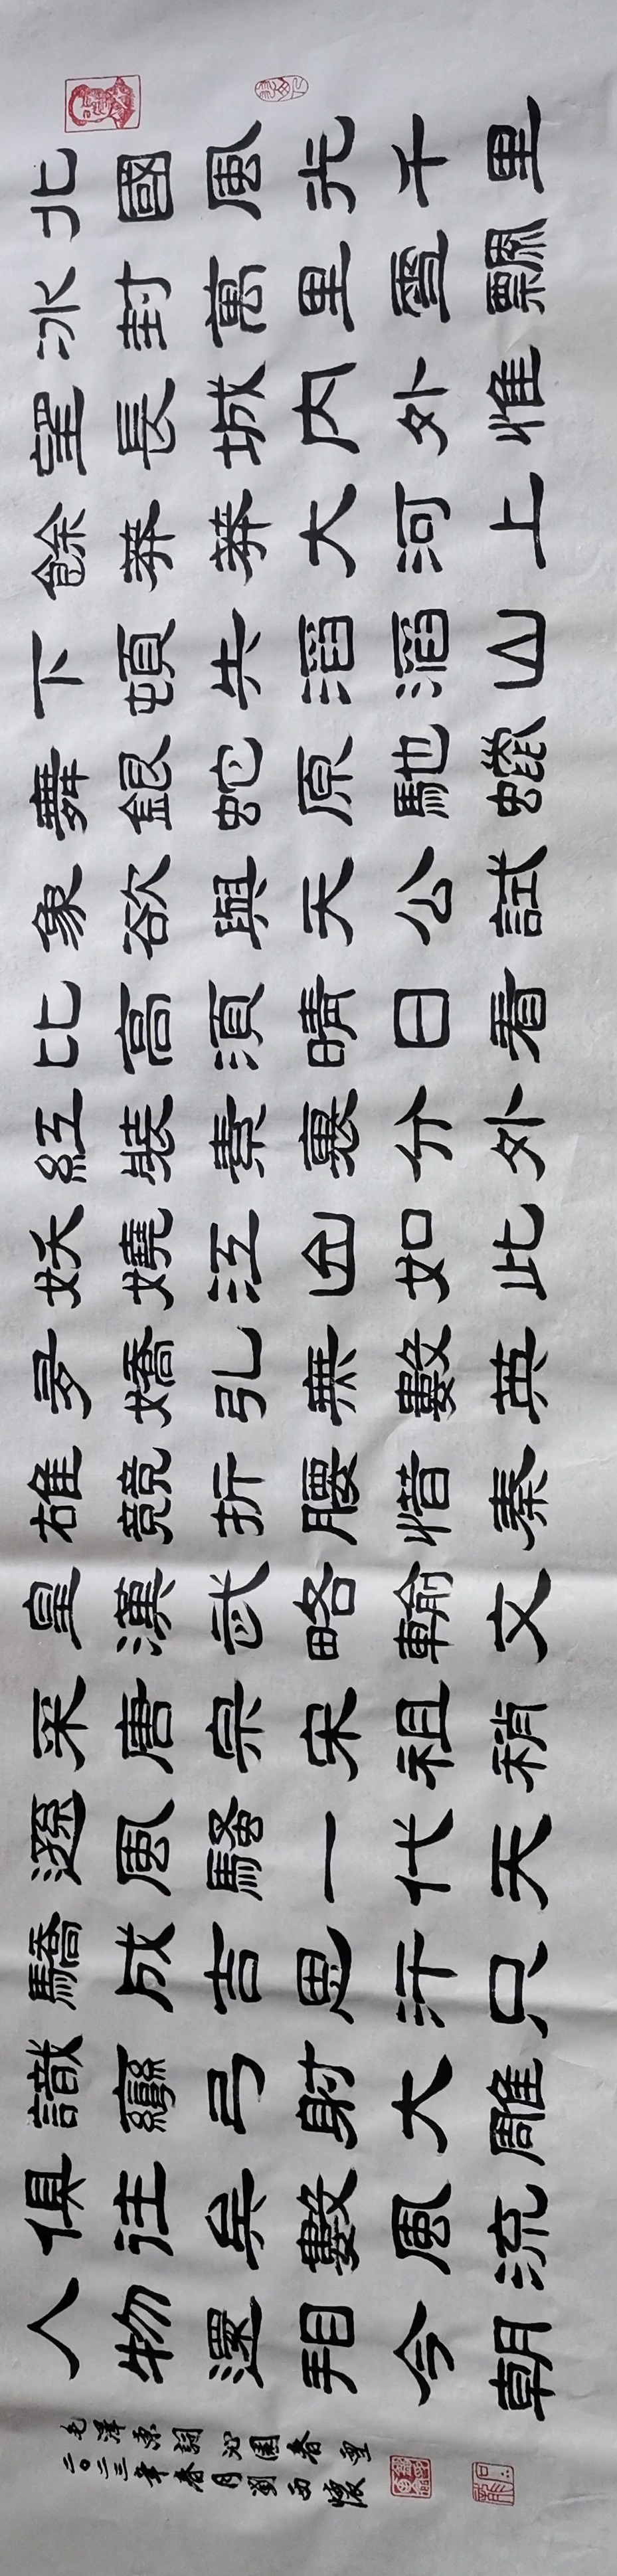 北國風光千里
冰封萬里雪飄
望長城內外惟
餘莽莽大河上
下頓失滔滔山
舞銀蛇原馳蠟
象欲與天公試
比高須晴日看
紅裝素裹分外
妖嬈江山如此
多嬌引無數英
雄競折腰惜秦
皇漢武略輸文
采唐宗宋祖稍
遜風騷一代天
驕成吉思汗只
識彎弓射大雕
俱往矣數風流
人物還看今朝
毛澤東詞沁園春雪
二〇二三年春月劉西懷